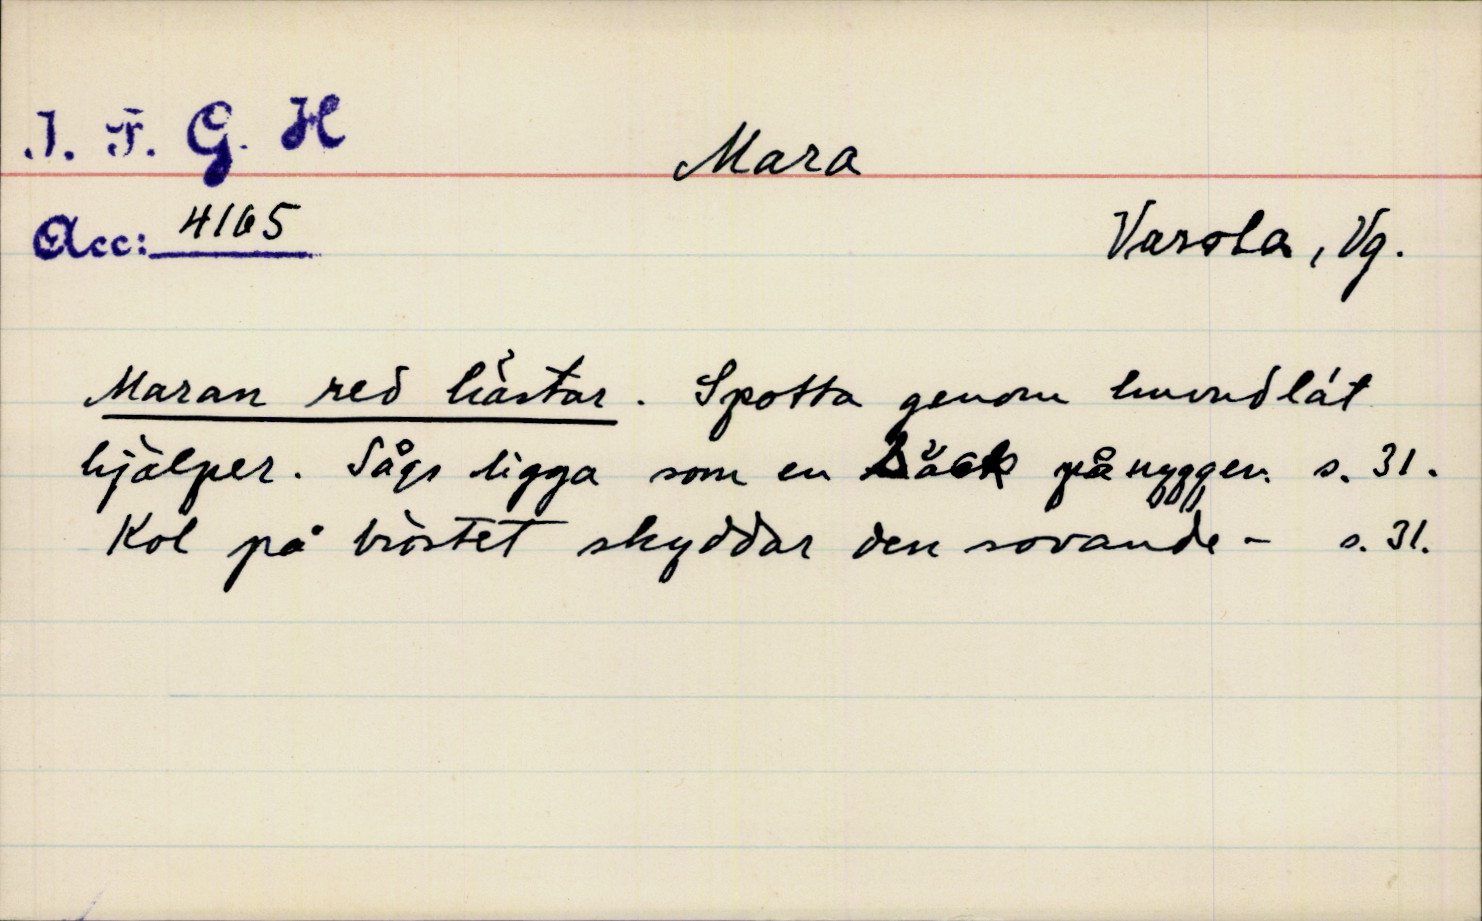 I. F. G. H
Mara
Acc: 4165
Varola, Vg.
Maran red hästar. Spotta genom huvudlåt
hjälper. Sågs ligga som en säck på ryggen. s. 31.
Kol på bröstet skyddar den sovande - s. 31.